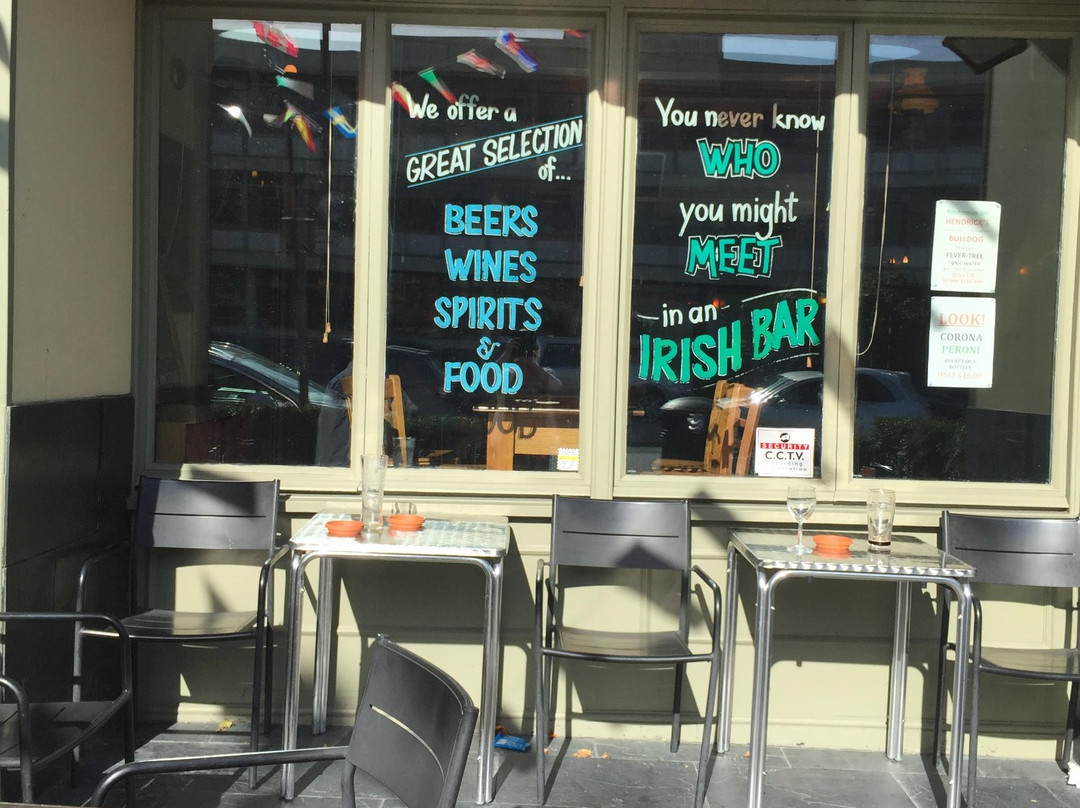 We offer a
GREAT SELECTION
of...
BEERS
WINES
SPIRITS
&
FOOD
You never know
WHO
you might
MEET
in an
IRISH BAR
HENDRICK'S
BULLDOG
FEVER-TREE
LOOK!
CORONA
PERONI
BUCKET OF 4
BOTTLES
SECURITY
C.C.T.V.